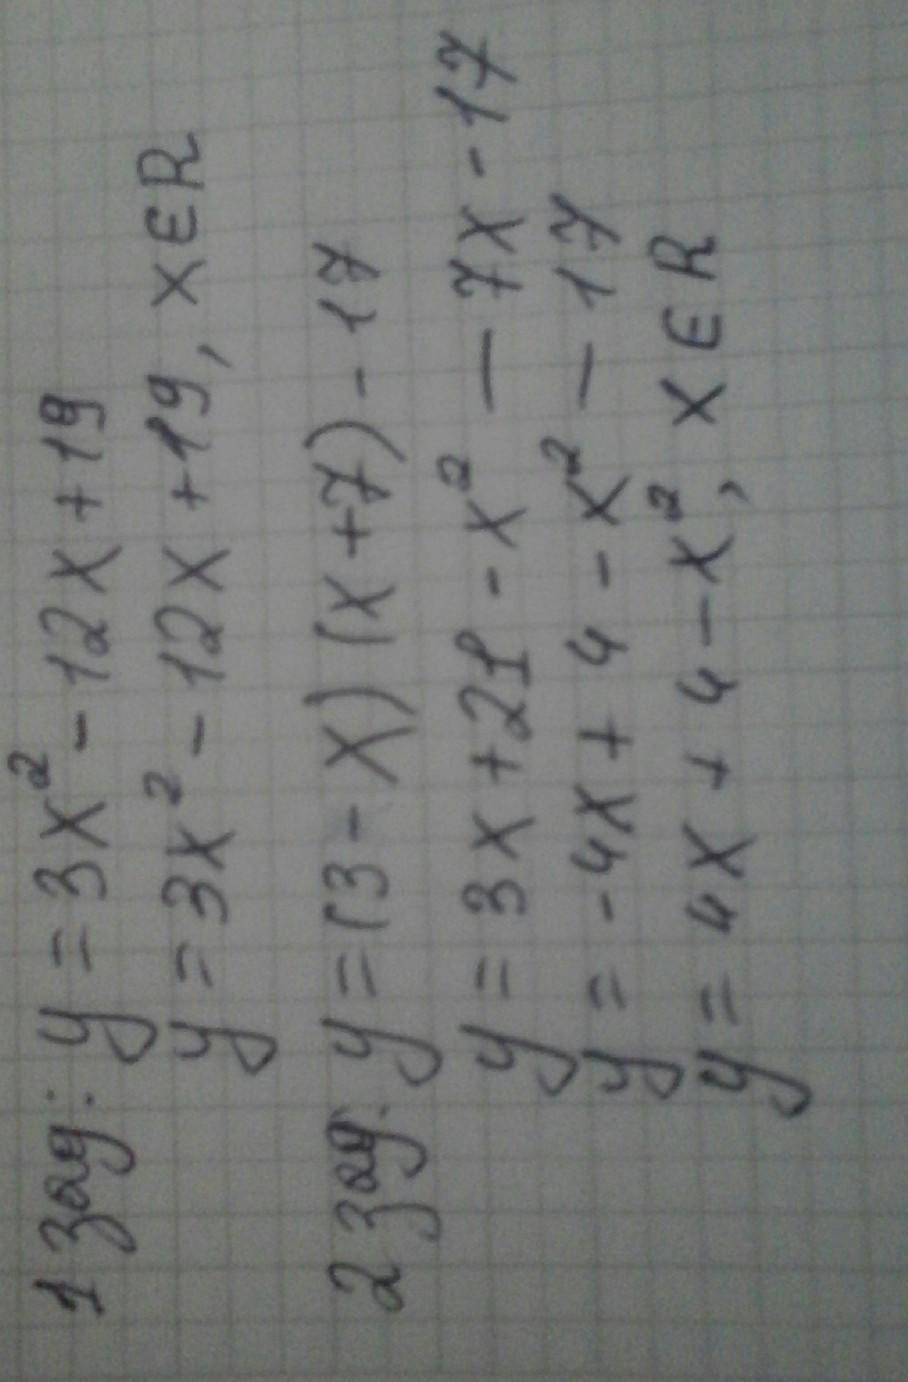 1 зад: y = 3x² - 12x + 19
y = 3x² - 12x + 19, x ∈ R
2 зад: y = (3 - x) (x + 7) - 17
y = 3x + 21 - x² - 7x - 17
y = -4x + 4 - x² - 17
y = 4x + 4 - x², x ∈ R